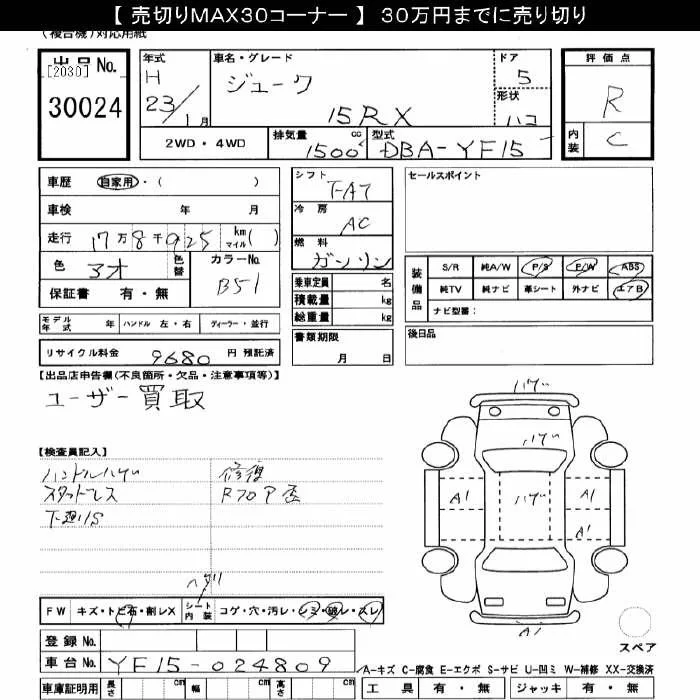 【 売切りMAX30コーナー 】 30万円までに売り切り
(複合機)対応用紙
出品 No.
[2030]
30024
年式
H
23/1月
車名・グレード
ジューク
15RX
ドア
5
形状
ハコ
評価点
R
内装
C
2WD・4WD
排気量
cc
1500
型式
DBA-YF15
車歴 自家用・( )
車検 年 月
走行 17万8千925 km マイル( )
色 アオ 色替
カラーNo.
B51
保証書 有・無
シフト
F-AT
冷房
AC
燃料
ガソリン
乗車定員 名
積載量 kg
総重量 kg
セールスポイント
装備品
S/R 純A/W P/S P/W ABS
純TV 純ナビ 革シート 外ナビ エアB
ナビ型番:
モデル年式 年 ハンドル 左・右 ディーラー・並行
書類期限
月 日
後日品
リサイクル料金 9680 円 預託済
【出品店申告欄(不良箇所・欠品・注意事項等)】
ユーザー買取
【検査員記入】
ハンドルハゲ
スタッドレス
下廻りS
修復
ハゲ
ハゲ
ハゲ
A1
A1
A1
A1
FW キズ・トビ石・削レX
シート内装 コゲ・穴・汚レ・シミ・破レ・スレ
スペア
登録 No.
車台 No. YF15-024809
A-キズ C-腐食 E-エクボ S-サビ U-凹ミ W-補修 XX-交換済
車庫証明用 長さ cm 幅 cm 高さ cm
工具 有・無 ジャッキ 有・無